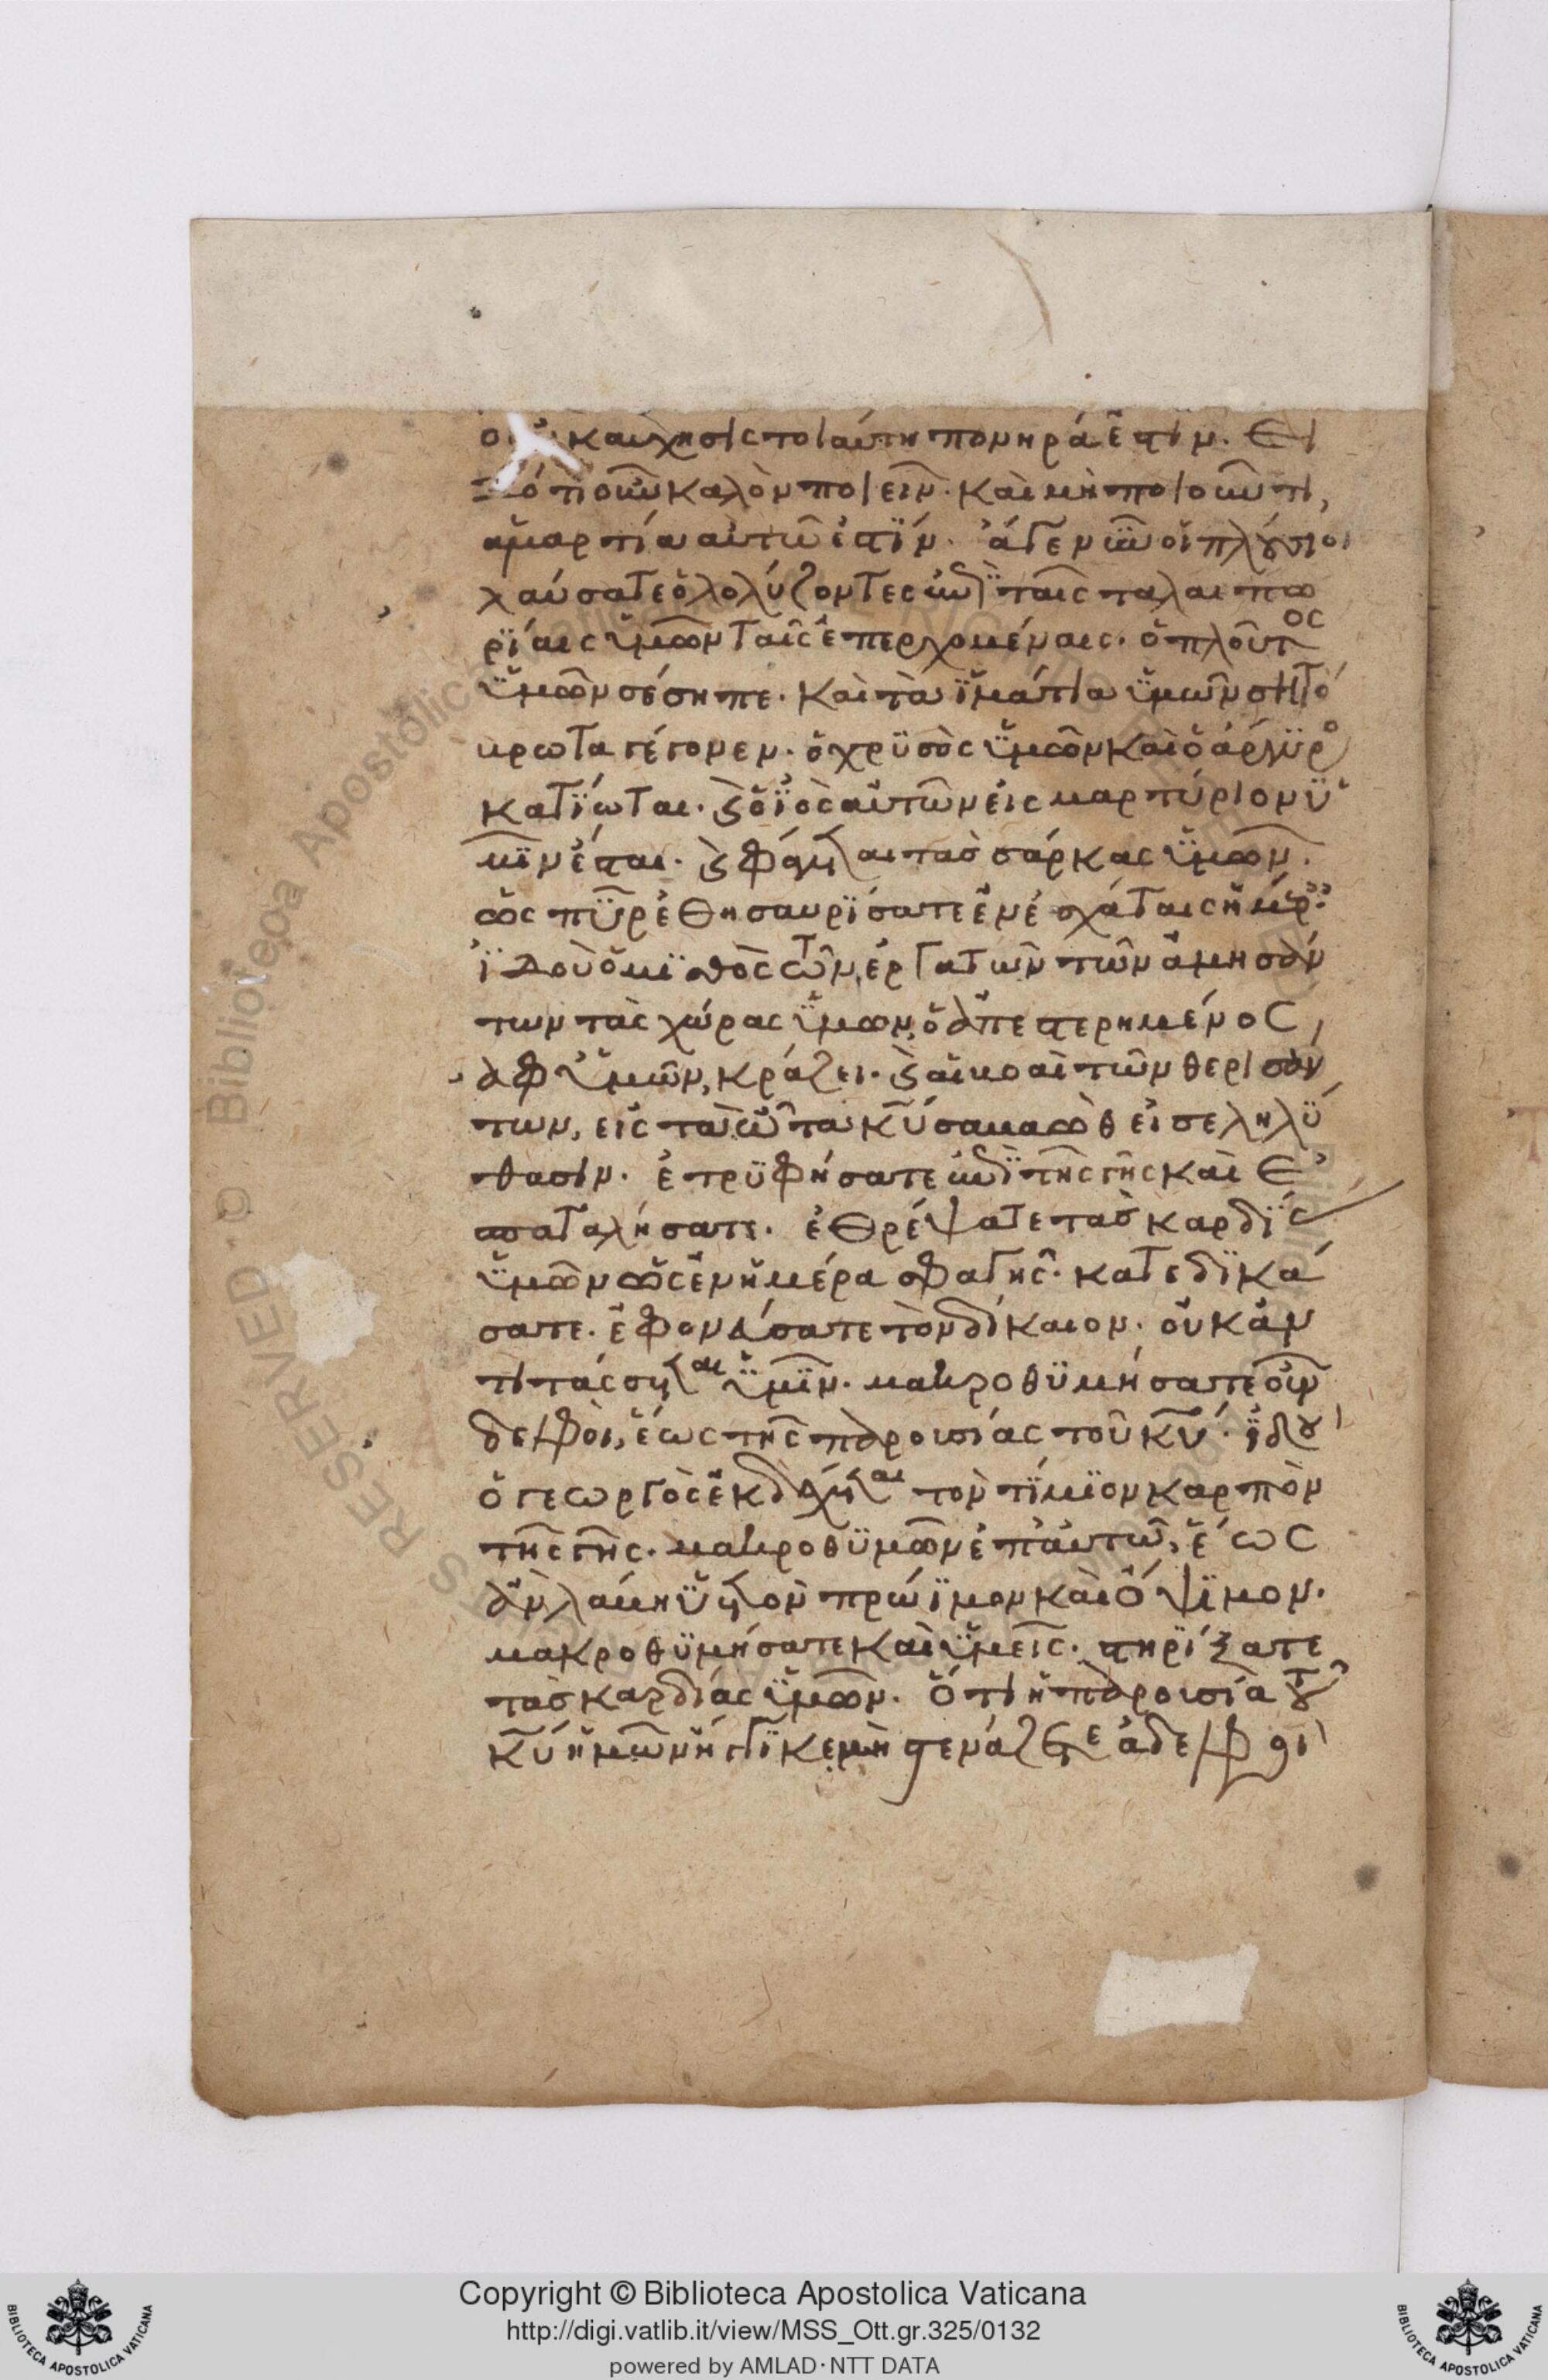 καυχησις τοιαύτη πονηρά ἐστιν. Εἰ
δότι οὖν καλὸν ποιεῖν. καὶ μὴ ποιοῦντι,
ἁμαρτία αὐτῶ ἐστίν. ἄγε νῦν οἱ πλούσιοι
κλαύσατε ὀλολύζοντες ἐπὶ ταῖς ταλαιπω
ρίαις ὑμῶν ταῖς ἐπερχομέναις. ὁ πλοῦτος
ὑμῶν σέσηπε. καὶ τὰ ἱμάτια ὑμῶν σητό
βρωτα γέγονεν. ὁ χρυσὸς ὑμῶν καὶ ὁ ἄργυρο
κατίωται. ϗ ὁ ἰὸς αὐτῶν εἰς μαρτύριον ὑ
μῖν ἔσται. ϗ φάγεται τὰς σάρκας ὑμῶν.
ὡς πῦρ ἐθησαυρίσατε ἐν ἐσχάταις ἡμέρ
ἰδοὺ ὁ μισθὸς τῶν ἐργατῶν τῶν ἀμησάν
των τὰς χώρας ὑμῶν, ὁ ἀπεστερημένος,
ἀφ ὑμῶν, κράζει. ϗ αἱ βοαὶ τῶν θερισάν
των, εἰς τὰ ὦτα κ̅υ̅ σαβαὼθ εἰσεληλύ
θασιν. ἐτρυφήσατε ἐπὶ τῆς γῆς καὶ ἐ
σπαταλήσατε. ἐθρέψατε τὰς καρδίας
ὑμῶν ὡς ἐν ἡμέρα σφαγῆς. κατεδικά
σατε. ἐφονεύσατε τὸν δίκαιον. οὐκ ἀν
τιτάσσεται ὑμῖν. μακροθυμήσατε οὖν
ἀδελφοὶ, ἕως τῆς παρουσίας τοῦ κ̅υ̅. ἰδοὺ
ὁ γεωργὸς ἐκδέχεται τὸν τίμιον καρπὸν
τῆς γῆς. μακροθυμῶν ἐπ αὐτῶ, ἕως
ἂν λάβη ὑετὸν πρώιμον καὶ ὄψιμον.
μακροθυμήσατε καὶ ὑμεῖς. στηρίξατε
τὰς καρδίας ὑμῶν. ὅτι ἡ παρουσία τοῦ
κ̅υ̅ ἡμῶν ἤγγικε μὴ στενάζετε ἀδελφοὶ
Copyright © Biblioteca Apostolica Vaticana
http://digi.vatlib.it/view/MSS_Ott.gr.325/0132
powered by AMLAD·NTT DATA
BIBLIOTECA APOSTOLICA VATICANA
BIBLIOTECA APOSTOLICA VATICANA